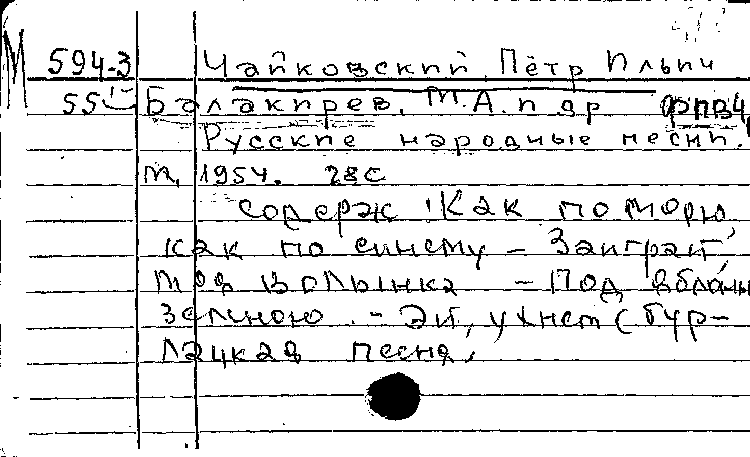 М 594-3 Чайковский, Пётр Ильич
55 Балакирев, М.А. и др
Русские народные песни.
М, 1954. 28с
содерж: Как по морю
как по синему - Заиграй,
моя волынка - Под яблонь
зеленою. - Эй, ухнем (бур-
лацкая песня,